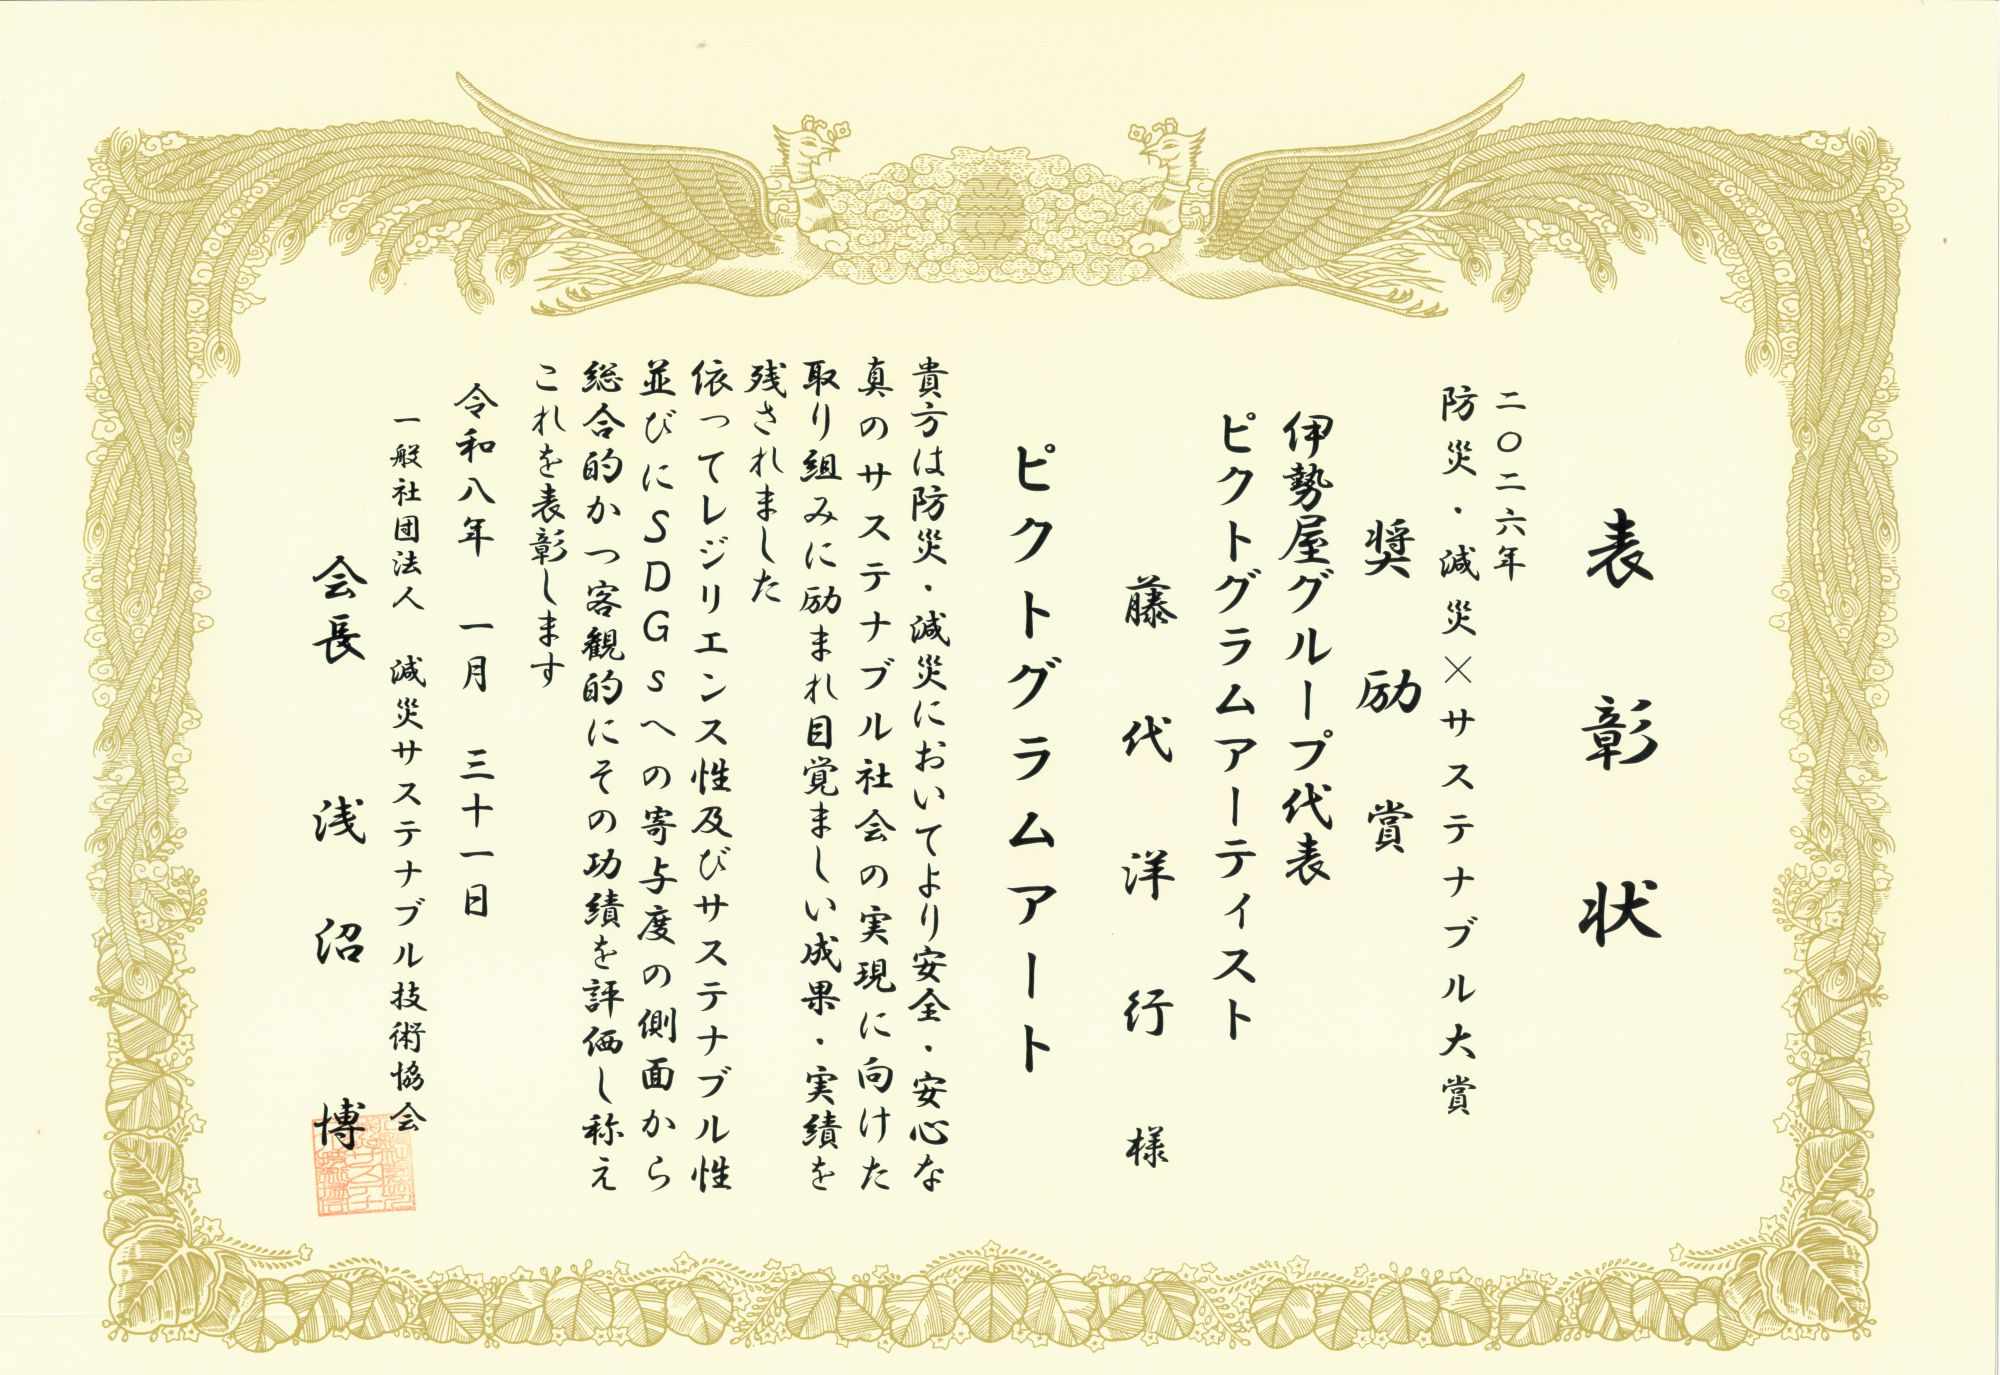 表彰状
二〇二六年
防災・減災×サステナブル大賞
奨励賞
伊勢屋グループ代表
ピクトグラムアーティスト
藤代洋行様
ピクトグラムアート
貴方は防災・減災においてより安全・安心な
真のサステナブル社会の実現に向けた
取り組みに励まれ目覚ましい成果・実績を
残されました
依ってレジリエンス性及びサステナブル性
並びにSDGsへの寄与度の側面から
総合的かつ客観的にその功績を評価し称え
これを表彰します
令和八年 一月 三十一日
一般社団法人 減災サステナブル技術協会
会長 浅沼 博